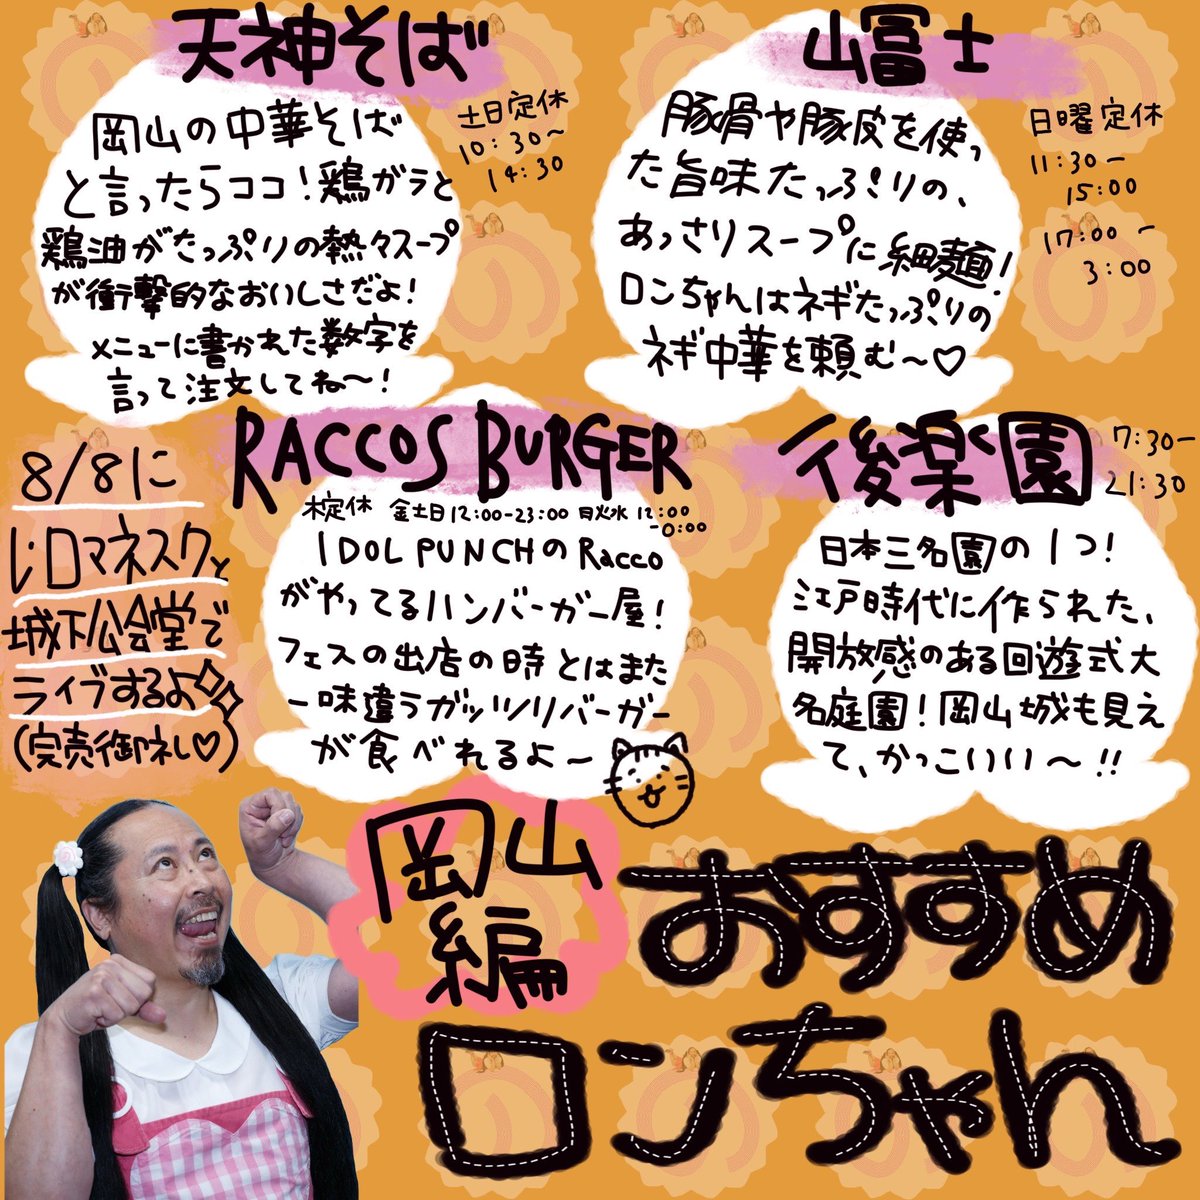 天神そば
土日定休
10:30〜
14:30
岡山の中華そば
と言ったらココ!鶏ガラと
鶏油がたっぷりの熱々スープ
が衝撃的なおいしさだよ!
メニューに書かれた数字を
言って注文してね〜!
山冨士
日曜定休
11:30ー
15:00
17:00ー
3:00
豚骨や豚皮を使っ
た旨味たっぷりの、
あっさりスープに細麺!
ロンちゃんはネギたっぷりの
ネギ中華を頼む〜♡
8/8に
レ・ロマネスクと
城下公会堂で
ライブするよ✧✧
(完売御礼♡)
RACCOS BURGER
木定休 金土日12:00-23:00 月火水12:00
-0:00
IDOL PUNCHのRacco
がやってるハンバーガー屋!
フェスの出店の時とはまた
一味違うガッツリバーガー
が食べれるよ〜
後楽園
7:30-
21:30
日本三名園の1つ!
江戸時代に作られた、
開放感のある回遊式大
名庭園!岡山城も見え
て、かっこいい〜!!
岡山
編
おすすめ
ロンちゃん